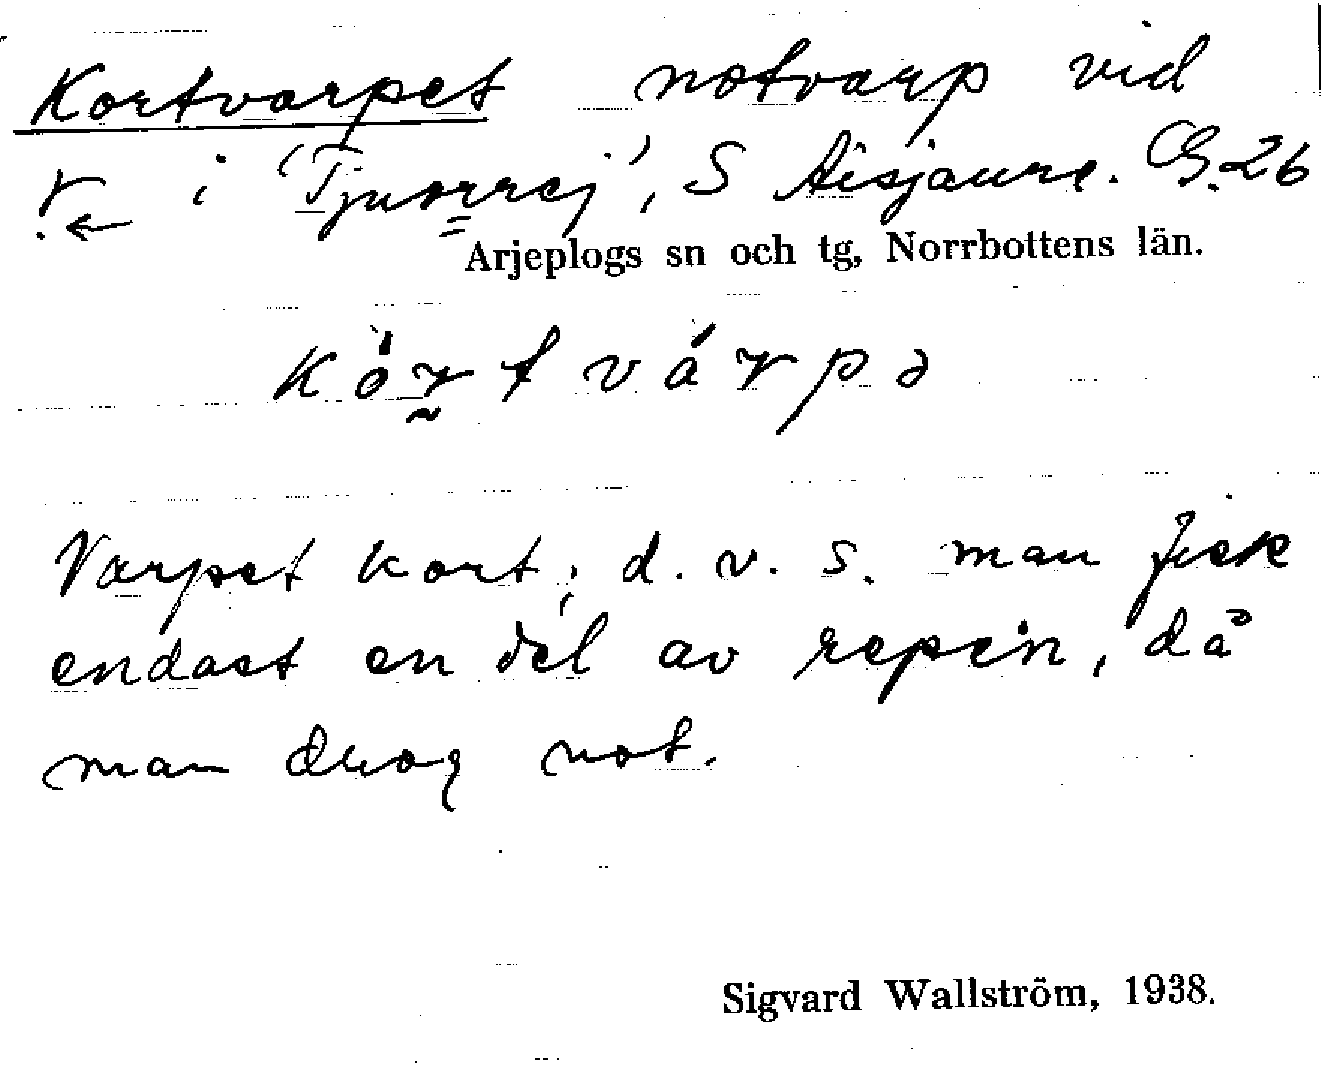 Kortvarpet notvarp vid
r i 'Tjuorrej', S Aisjaure. G. 26
Arjeplogs sn och tg, Norrbottens län.
kòrt várpə
Varpet kort; d. v. s. man fick
endast en del av repen, då
man drog not.
Sigvard Wallström, 1938.